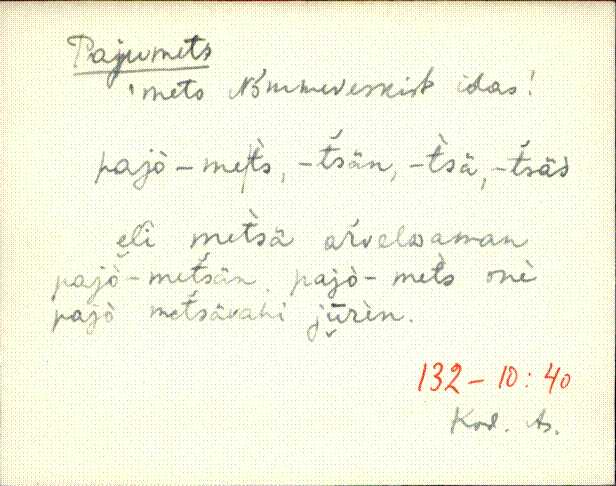 Pajumets
'mets Nõmmeveskist idas!
pajò-met̀s, -t́sän, -t̀sä, -t́säs̀
eli met̀sä aŕvelwaman
pajò-met́sän. pajò-met̀s onè
pajò met́sävahi jūrèn.
132-10:40
Kod. As.